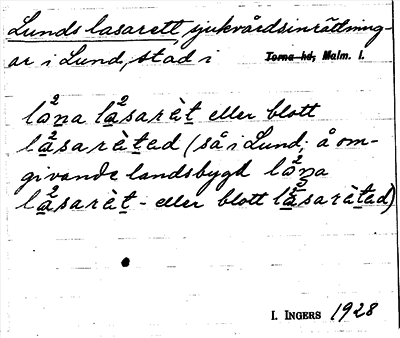 Lunds lasarett, sjukvårdsinrättning-
ar i Lund, stad i Torna hd, Malm. l.
lo²na la²sarèt eller blott
la²saràtad (så i Lund; å om-
givande landsbygd lo²na
la²sarèt - eller blott la²saràtad)
I. INGERS 1928